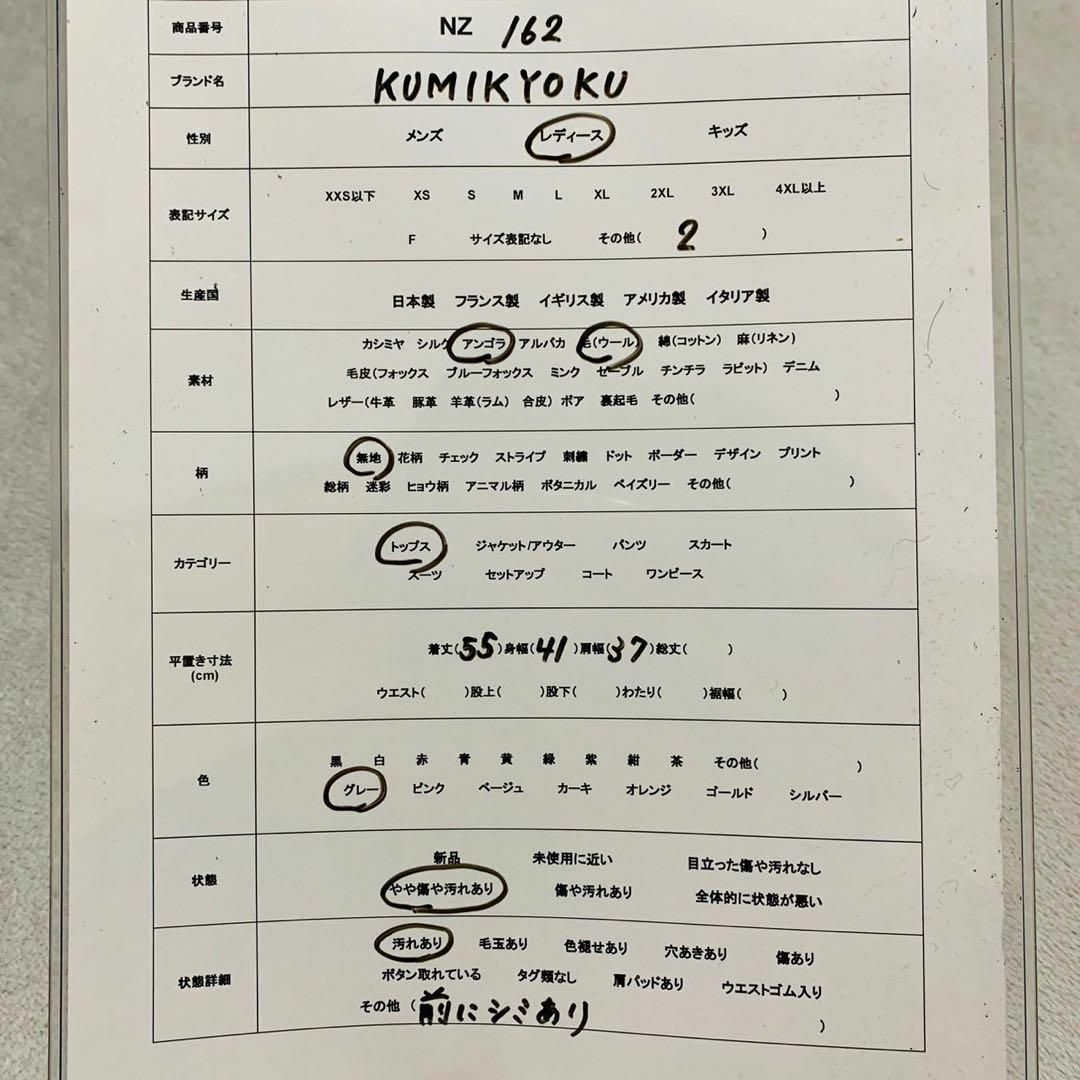 商品番号 NZ 162
ブランド名 KUMIKYOKU
性別 メンズ レディース キッズ
表記サイズ XXS以下 XS S M L XL 2XL 3XL 4XL以上
F サイズ表記なし その他( 2 )
生産国 日本製 フランス製 イギリス製 アメリカ製 イタリア製
素材 カシミヤ シルク アンゴラ アルパカ 毛(ウール) 綿(コットン) 麻(リネン)
毛皮(フォックス ブルーフォックス ミンク セーブル チンチラ ラビット) デニム
レザー(牛革 豚革 羊革(ラム) 合皮) ボア 裏起毛 その他( )
柄 無地 花柄 チェック ストライプ 刺繍 ドット ボーダー デザイン プリント
総柄 迷彩 ヒョウ柄 アニマル柄 ボタニカル ペイズリー その他( )
カテゴリー トップス ジャケット/アウター パンツ スカート
スーツ セットアップ コート ワンピース
平置き寸法 着丈(55)身幅(41)肩幅(37)総丈( )
(cm) ウエスト( )股上( )股下( )わたり( )裾幅( )
色 黒 白 赤 青 黄 緑 紫 紺 茶 その他( )
グレー ピンク ベージュ カーキ オレンジ ゴールド シルバー
状態 新品 未使用に近い 目立った傷や汚れなし
やや傷や汚れあり 傷や汚れあり 全体的に状態が悪い
状態詳細 汚れあり 毛玉あり 色褪せあり 穴あきあり 傷あり
ボタン取れている タグ類なし 肩パッドあり ウエストゴム入り
その他 (前にシミあり )